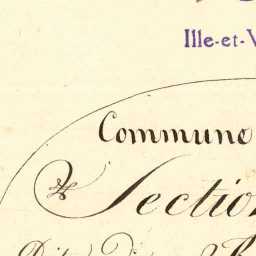 Ille-et-V
Commune
Section
Dite